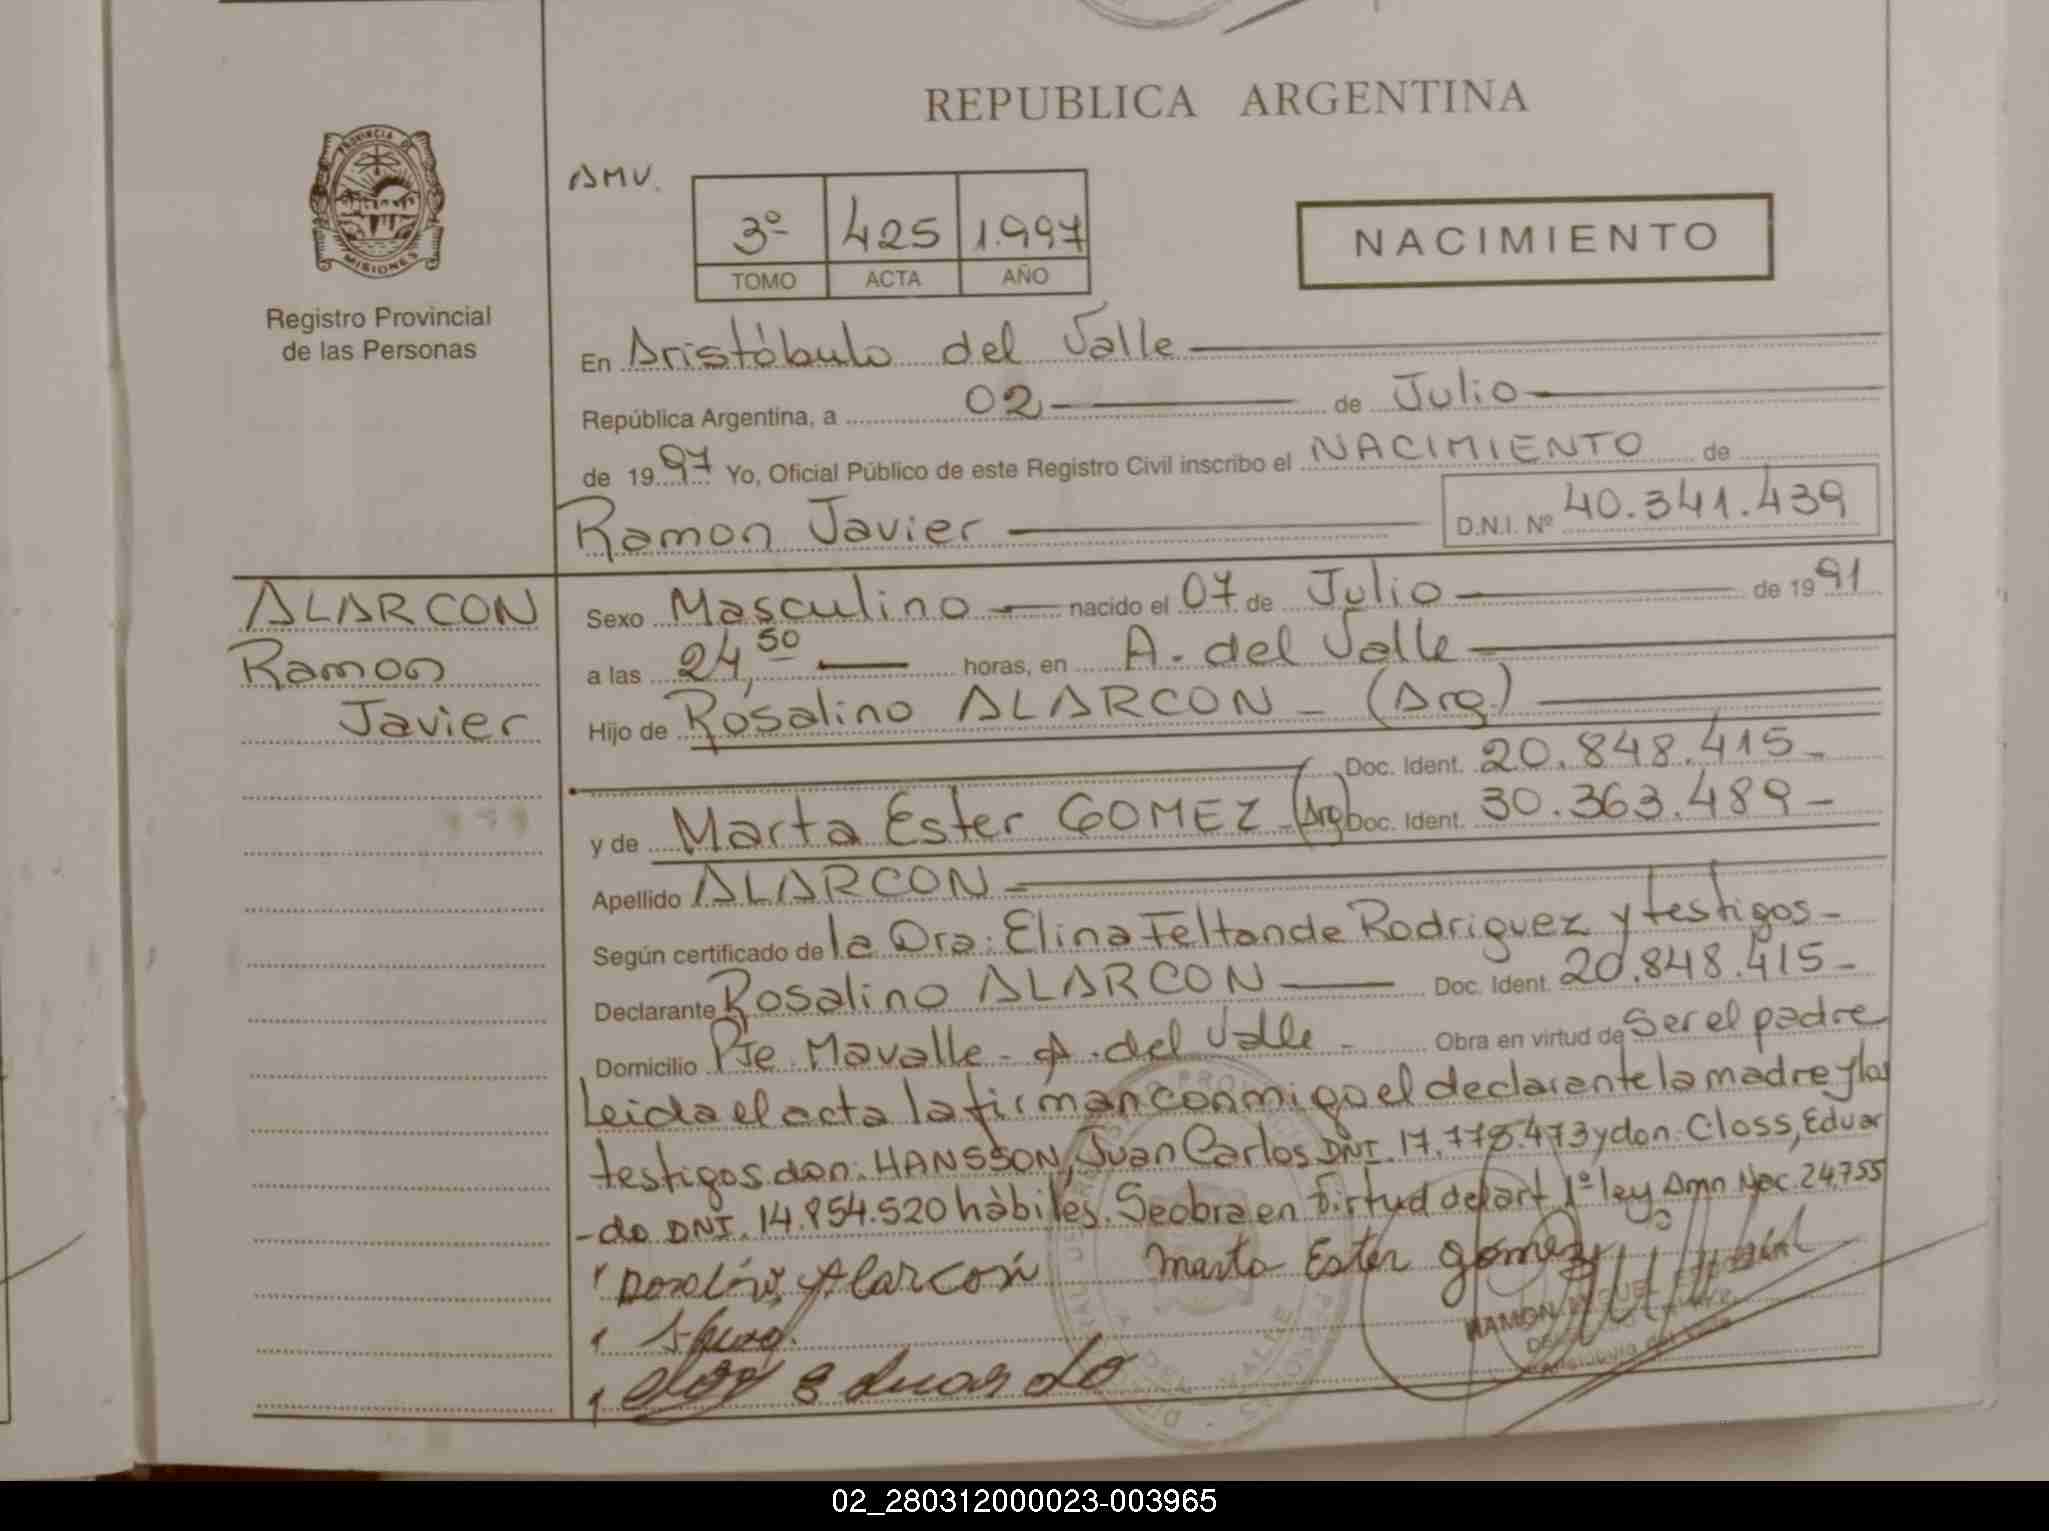 REPUBLICA ARGENTINA
PROVINCIA DE
MISIONES
Registro Provincial
de las Personas
AMV.
3º 425 1.997
TOMO ACTA AÑO
NACIMIENTO
En Aristóbulo del Valle
República Argentina, a 02 de Julio
de 1997 Yo, Oficial Público de este Registro Civil inscribo el NACIMIENTO de
Ramon Javier D.N.I. Nº 40.341.439
ALARCON
Ramon
Javier
Sexo Masculino nacido el 07 de Julio de 1991
a las 24,50 horas, en A. del Valle
Hijo de Rosalino ALARCON - (Arg.)
Doc. Ident. 20.848.415-
y de Marta Ester GOMEZ - (Arg) Doc. Ident. 30.363.489-
Apellido ALARCON
Según certificado de la Dra: Elina Feltan de Rodriguez y testigos-
Declarante Rosalino ALARCON Doc. Ident. 20.848.415-
Domicilio Pje. Mavalle - A. del Valle - Obra en virtud de Ser el padre
Leida el acta la firman conmigo el declarante la madre y los
testigos don: HANSSON, Juan Carlos DNI. 17.778.473 y don: Closs, Eduar
-do DNI. 14.854.520 hàbiles. Se obra en virtud del art. 1º ley Amn Nac. 24.755
Alarcon Marta Ester gomez
Eduardo
RAMON MIGUEL
02_280312000023-003965